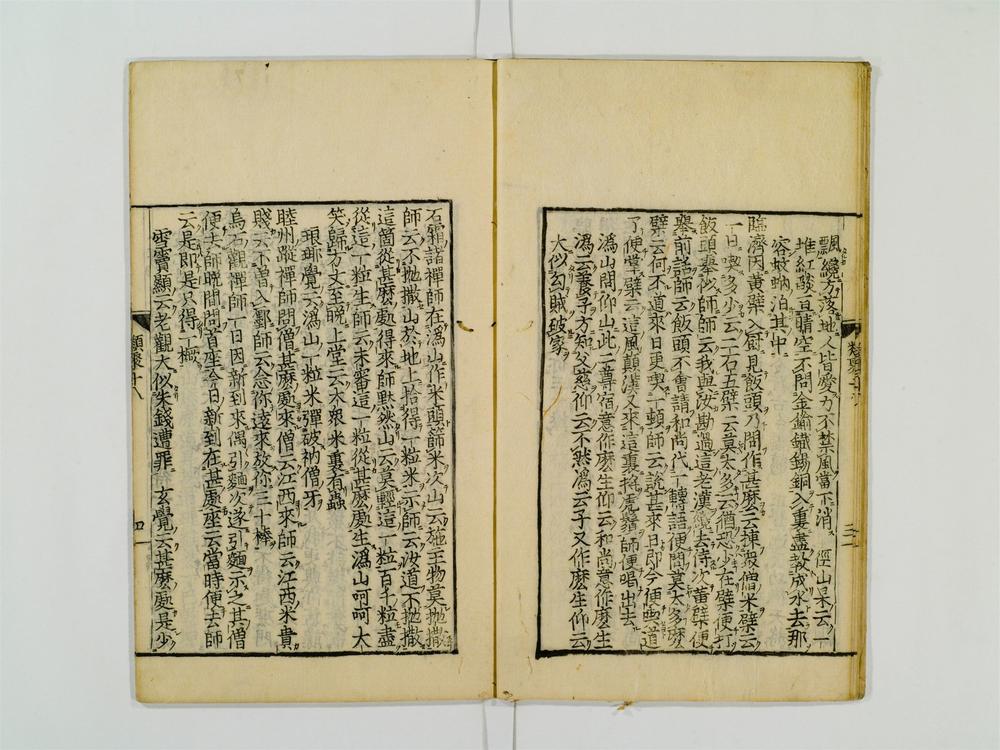 飄纔方落地人皆癢力不禁風當下消　徑山杲云一
堆紅𦦨亘晴空不問金鍮鐵錫銅入裏盡教成水去那
容蚊蚋泊其中
臨濟因黃檗入厨見飯頭乃問作甚麽云揀衆僧米檗云
一日喫多少云二石五檗云莫太多云猶恐少在檗便打
飯頭舉似師師云我與汝勘過這老漢纔去侍次黃檗便
舉前話師云飯頭不會請和尚代一轉語便問莫太多麽
檗云何不道來日更喫一頓師云說甚來日即今便喫道
了便掌檗云這風顛漢又來這裏捋虎鬚師便喝出去
潙山問仰山此二尊宿意作麽生仰云和尚意作麽生
潙云養子方知父慈仰云不然潙云子又作麽生仰云
大似勾賊破家
石霜諸禪師在潙山作米頭篩米次山云施主物莫抛撒
師云不抛撒山於地上拾得一粒米示師云汝道不抛撒
這箇從甚麽處得來師默然山云莫輕這一粒百千粒盡
從這一粒生師云未審這一粒從甚麽處生潙山呵呵大
笑歸方丈至晚上堂云大衆米裏有蟲
瑯琊覺云潙山一粒米彈破衲僧牙
睦州蹤禪師問僧甚麽處來僧云江西來師云江西米貴
賤云不曾入鄽師云念你遠來放你三十棒
烏石觀禪師一日因新到來偶引麵次遂引麵示之其僧
便去師晚間問首座今日新到在甚處座云當時便去師
云是即是只得一橛
雪竇顯云老觀大似失錢遭罪　玄覺云甚麽處是少